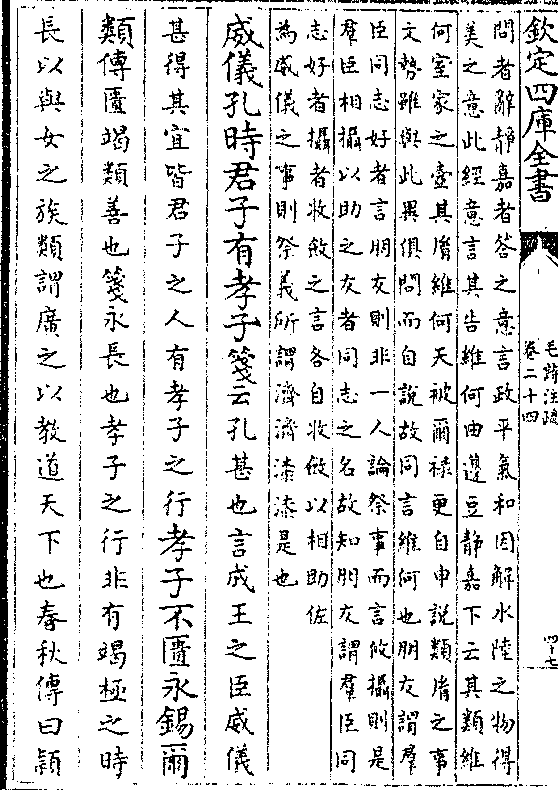 欽定四庫全書
毛詩注疏
卷二十四
四十七
問者辭靜嘉者荅之意言政平氣和因解水陸之物得
美之意此經意言其告維何由籩豆靜嘉下云其類維
何室家之壼其胤維何天被爾祿更自申說類胤之事
文勢雖與此異俱問而自說故同言維何也朋友謂羣
臣同志好者言朋友則非一人論祭事而言攸攝則是
羣臣相攝以助之友者同志之名故知朋友謂羣臣同
志好者攝者收斂之言各自收儆以相助佐
為威儀之事則祭義所謂濟濟漆漆是也
威儀孔時君子有孝子箋云孔甚也言成王之臣威儀
甚得其宜皆君子之人有孝子之行孝子不匱永錫爾
類傳匱竭類善也箋永長也孝子之行非有竭極之時
長以與女之族類謂廣之以教道天下也春秋傳曰頴